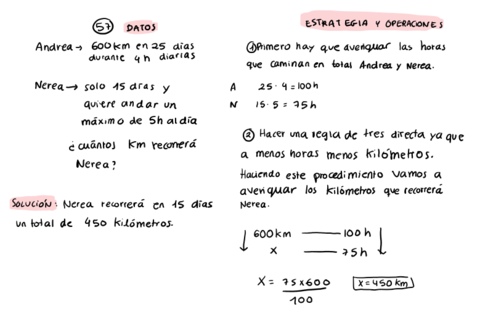 57 DATOS
Andrea → 600 km en 25 días
durante 4h diarias
Nerea → solo 15 días y
quiere andar un
máximo de 5h al día
¿cuántos km recorrerá
Nerea?
SOLUCIÓN: Nerea recorrerá en 15 días
un total de 450 kilómetros.
ESTRATEGIA Y OPERACIONES
① Primero hay que averiguar las horas
que caminan en total Andrea y Nerea.
A 25·4 = 100h
N 15·5 = 75h
② Hacer una regla de tres directa ya que
a menos horas menos kilómetros.
Haciendo este procedimiento vamos a
averiguar los kilómetros que recorrerá
Nerea.
↓ 600 km —— 100 h ↓
x —— 75 h
X = 75 x 600 / 100 X = 450 km